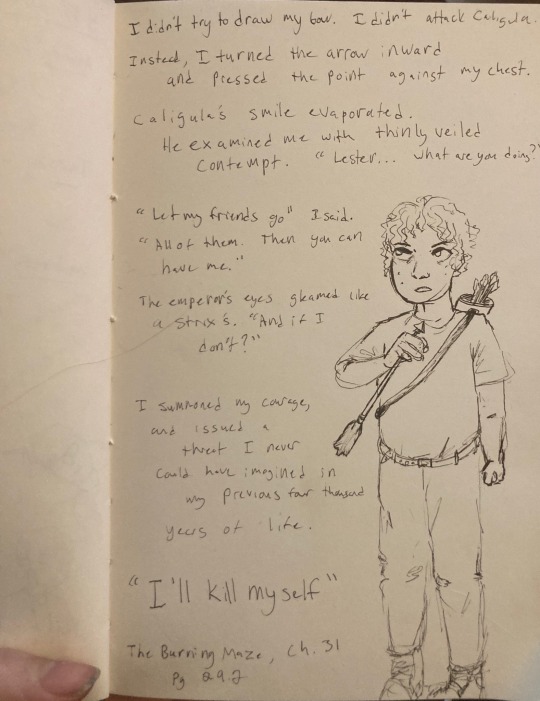 I didn't try to draw my bow. I didn't attack Caligula.
Instead, I turned the arrow inward
and pressed the point against my chest.
Caligula's smile evaporated.
He examined me with thinly veiled
contempt. "Lester... what are you doing?"
"Let my friends go" I said.
"All of them. Then you can
have me."
The emperor's eyes gleamed like
a strix's. "And if I
don't?"
I summoned my courage,
and issued a
threat I never
could have imagined in
my previous four thousand
years of life.
"I'll kill myself"
The Burning Maze, Ch. 31
Pg 292